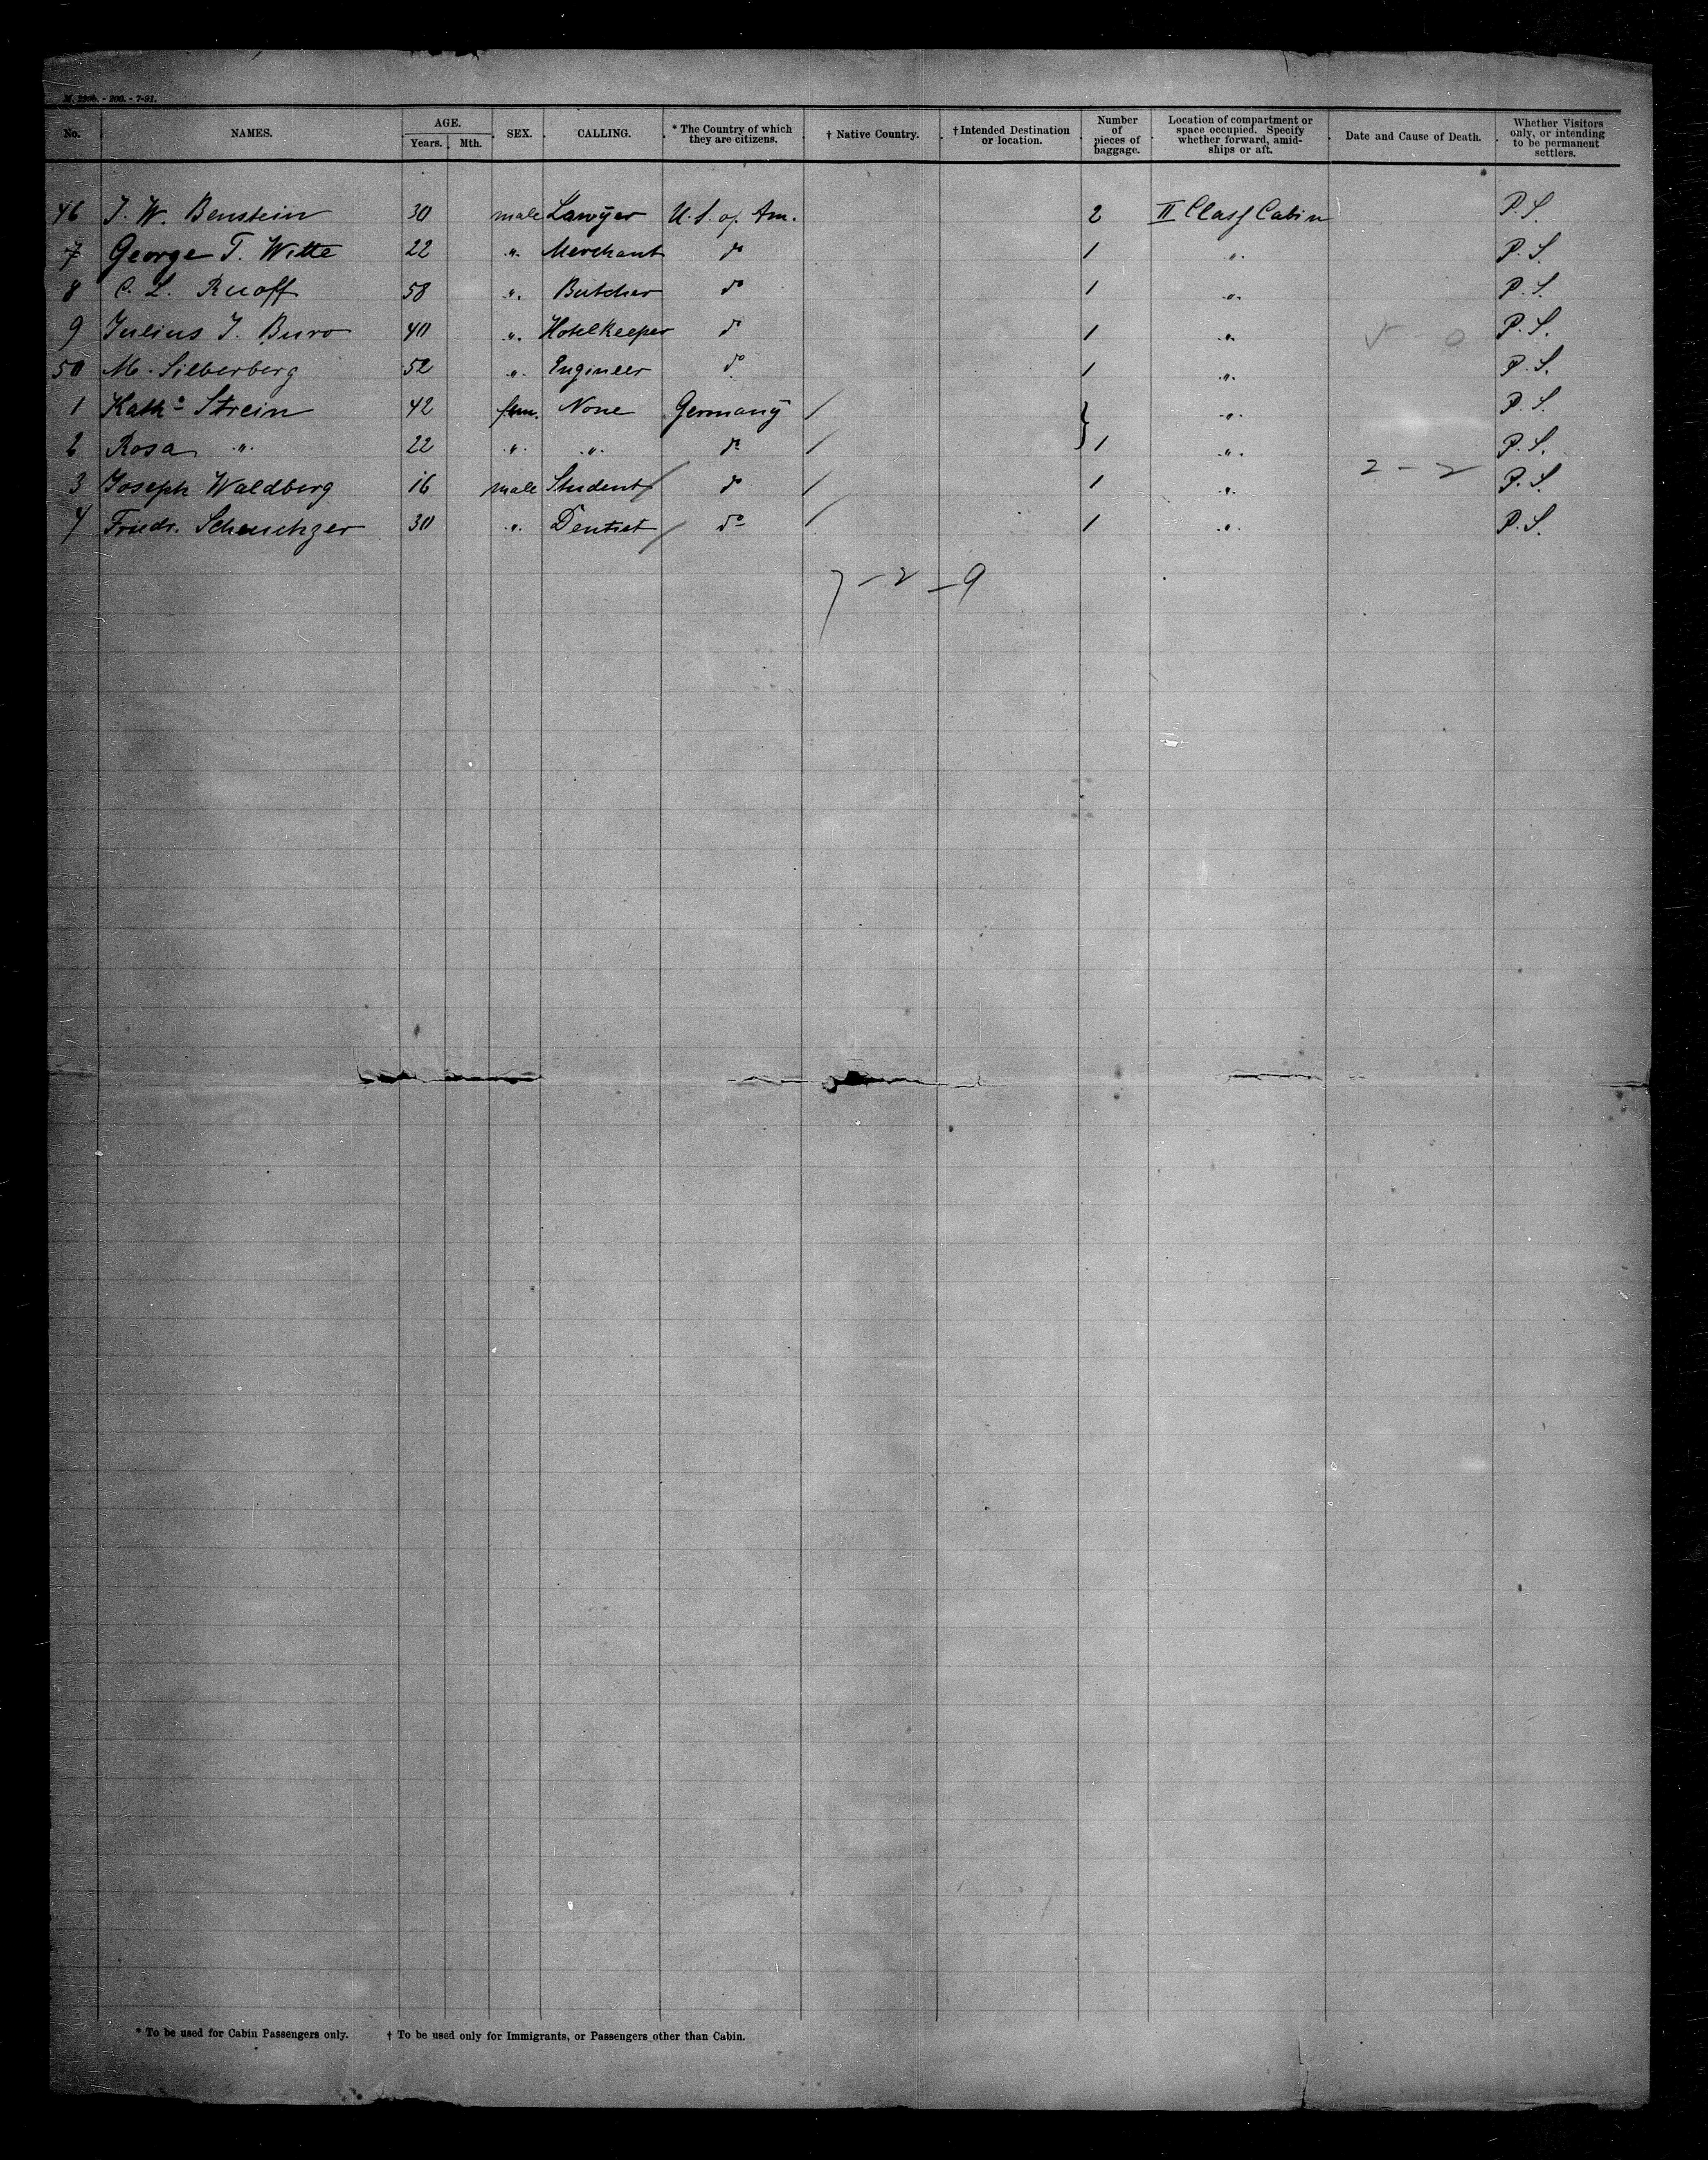 M. 220b. - 200. - 7-91.
No. NAMES. AGE. Years. Mth. SEX. CALLING. * The Country of which they are citizens. † Native Country. † Intended Destination or location. Number of pieces of baggage. Location of compartment or space occupied. Specify whether forward, amidships or aft. Date and Cause of Death. Whether Visitors only, or intending to be permanent settlers.
46 J. W. Benstein 30 male Lawyer U. S. of Am. 2 II Class Cabin P. S.
7 George T. Witte 22 " Merchant do 1 " P. S.
8 C. L. Ruoff 58 " Butcher do 1 " P. S.
9 Julius J. Buro 40 " Hotelkeeper do 1 " P. S.
5 - 0
50 M. Silberberg 52 " Engineer do 1 " P. S.
1 Kath.a Strein 42 fem. None Germany / } " P. S.
2 Rosa " 22 " " do / 1 " P. S.
2 - 2
3 Joseph Waldberg 16 male Student / do / 1 " P. S.
4 Friedr. Scheuchzer 30 " Dentist / do / 1 " P. S.
7 - 2 - 9
* To be used for Cabin Passengers only. † To be used only for Immigrants, or Passengers other than Cabin.